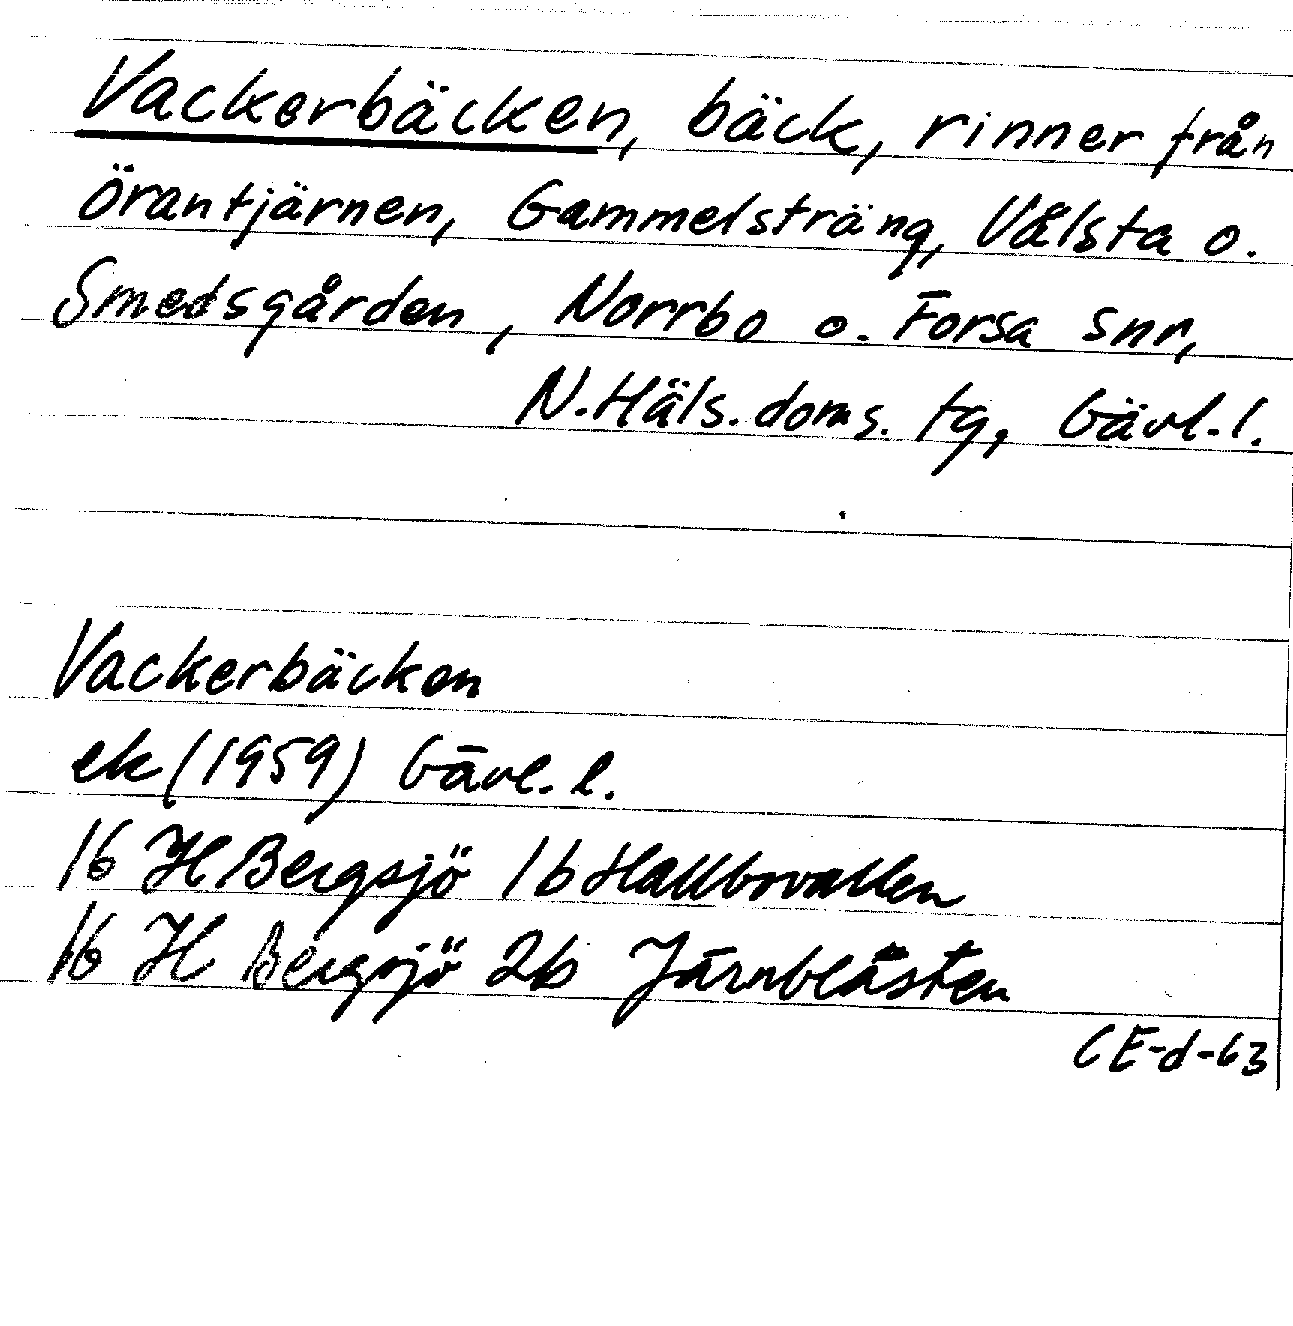 Vackerbäcken, bäck, rinner från
Örantjärnen, Gammelsträng, Vålsta o.
Smedsgården, Norrbo o. Forsa snr,
N. Häls. doms. tg, Gävl. l.
Vackerbäcken
ek (1959) Gävl. l.
16 H Bergsjö 1b Hallbovallen
16 H Bergsjö 2b Järnblästen
CE-d-63